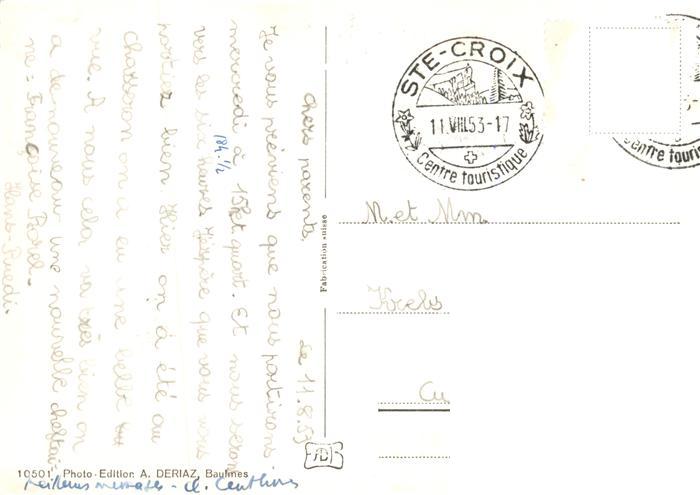 Chers parents.
Le 11.8.53
Je vous préviens que nous partirons
mercredi à 15h et quart. Et nous serons
18h 1/2
vers les six heures J'éspère que vous vous
portiez bien Hier on à été au
Chasseron on a eu une belle
vue. A nous cela va très bien on
a de nouveau une nouvelle cheftai-
ne: Françoise
Hans-Ruedi.
Meilleurs messages -
10501 Photo-Edition A. DERIAZ, Baulmes
Fabrication suisse
STE-CROIX
11.VIII.53-17
Centre touristique
Centre touristique
M. et Mm.
Krebs